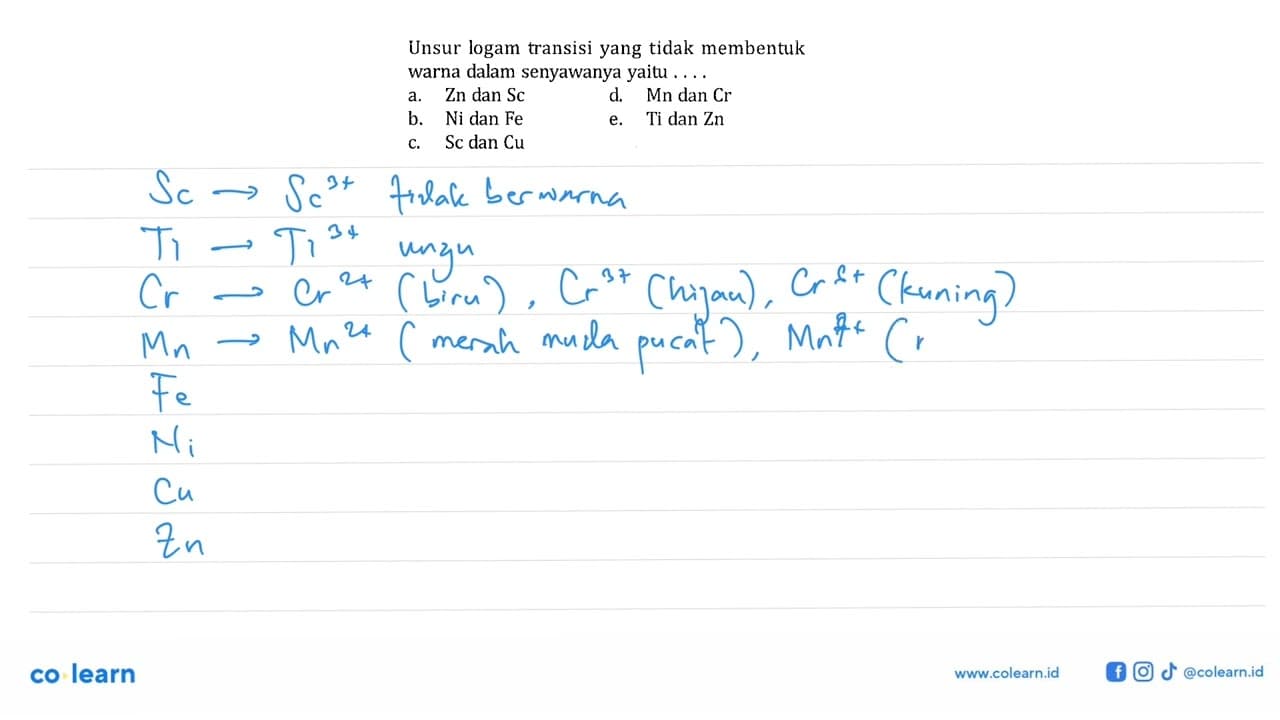 Unsur logam transisi yang tidak membentuk
warna dalam senyawanya yaitu . . . .
a. Zn dan Sc d. Mn dan Cr
b. Ni dan Fe e. Ti dan Zn
c. Sc dan Cu
Sc → Sc³⁺ tidak berwarna
Ti → Ti³⁺ ungu
Cr → Cr²⁺ (biru), Cr³⁺ (hijau), Cr⁶⁺ (kuning)
Mn → Mn²⁺ (merah muda pucat), Mn⁷⁺ (
Fe
Ni
Cu
Zn
co·learn
www.colearn.id @colearn.id